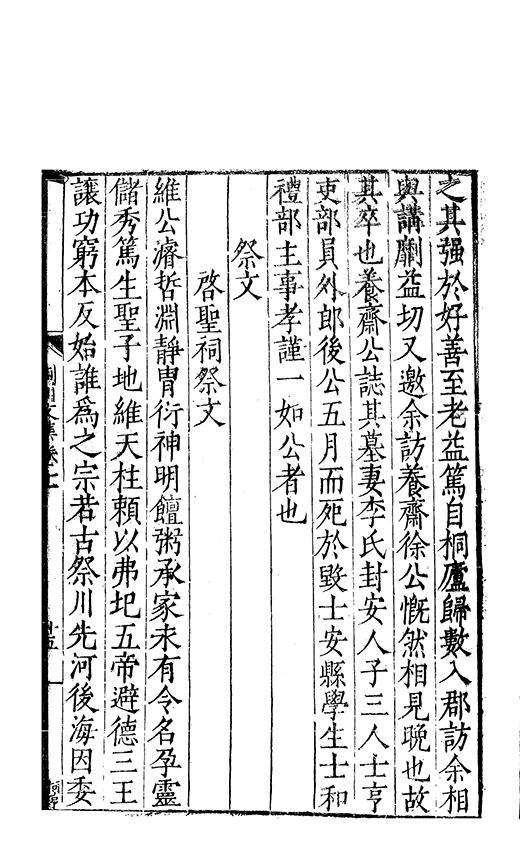 之其强於好善至老益篤自桐廬歸數入郡訪余相
與講劘益切又邀余訪養齋徐公慨然相見晚也故
其卒也養齋公誌其墓妻李氏封安人子三人士亨
吏部員外郎後公五月而死於毀士安縣學生士和
禮部主事孝謹一如公者也
祭文
啓聖祠祭文
維公濬哲淵靜胄衍神明饘粥承家未有令名孕靈
儲秀篤生聖子地維天柱賴以弗圮五帝避德三王
讓功窮本反始誰爲之宗若古祭川先河後海因委